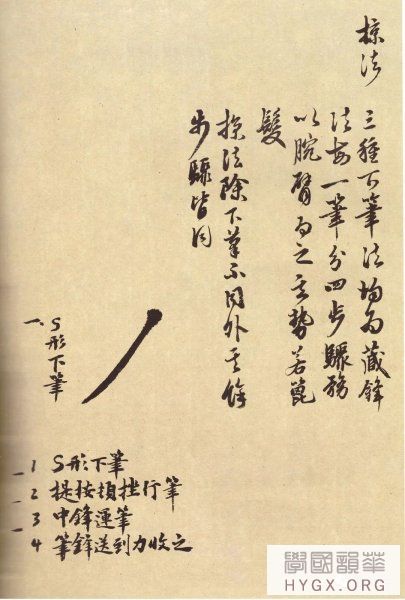 掠法
三種下筆法均為藏鋒
法每一筆分四步驟務
以腕臂為之其勢若篦
髮
掠法除下筆不同外其餘
步驟皆同
一、S形下筆
1 S形下筆
2 提按頓挫行筆
3 中鋒運筆
4 筆鋒送到力收之
華韻國學
HYGX.ORG